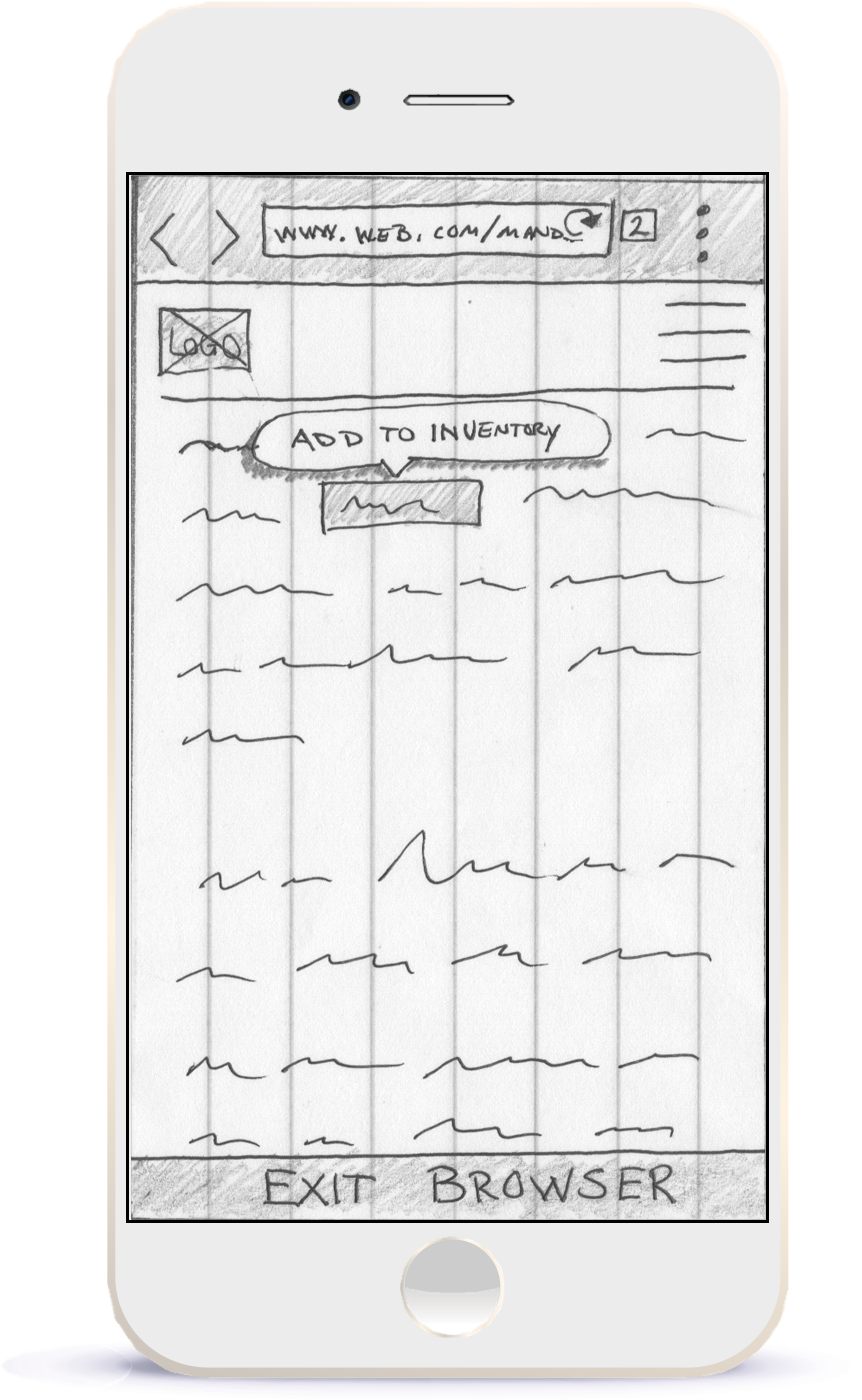 WWW.WEB.COM/MAND
2
LOGO
ADD TO INVENTORY
EXIT BROWSER